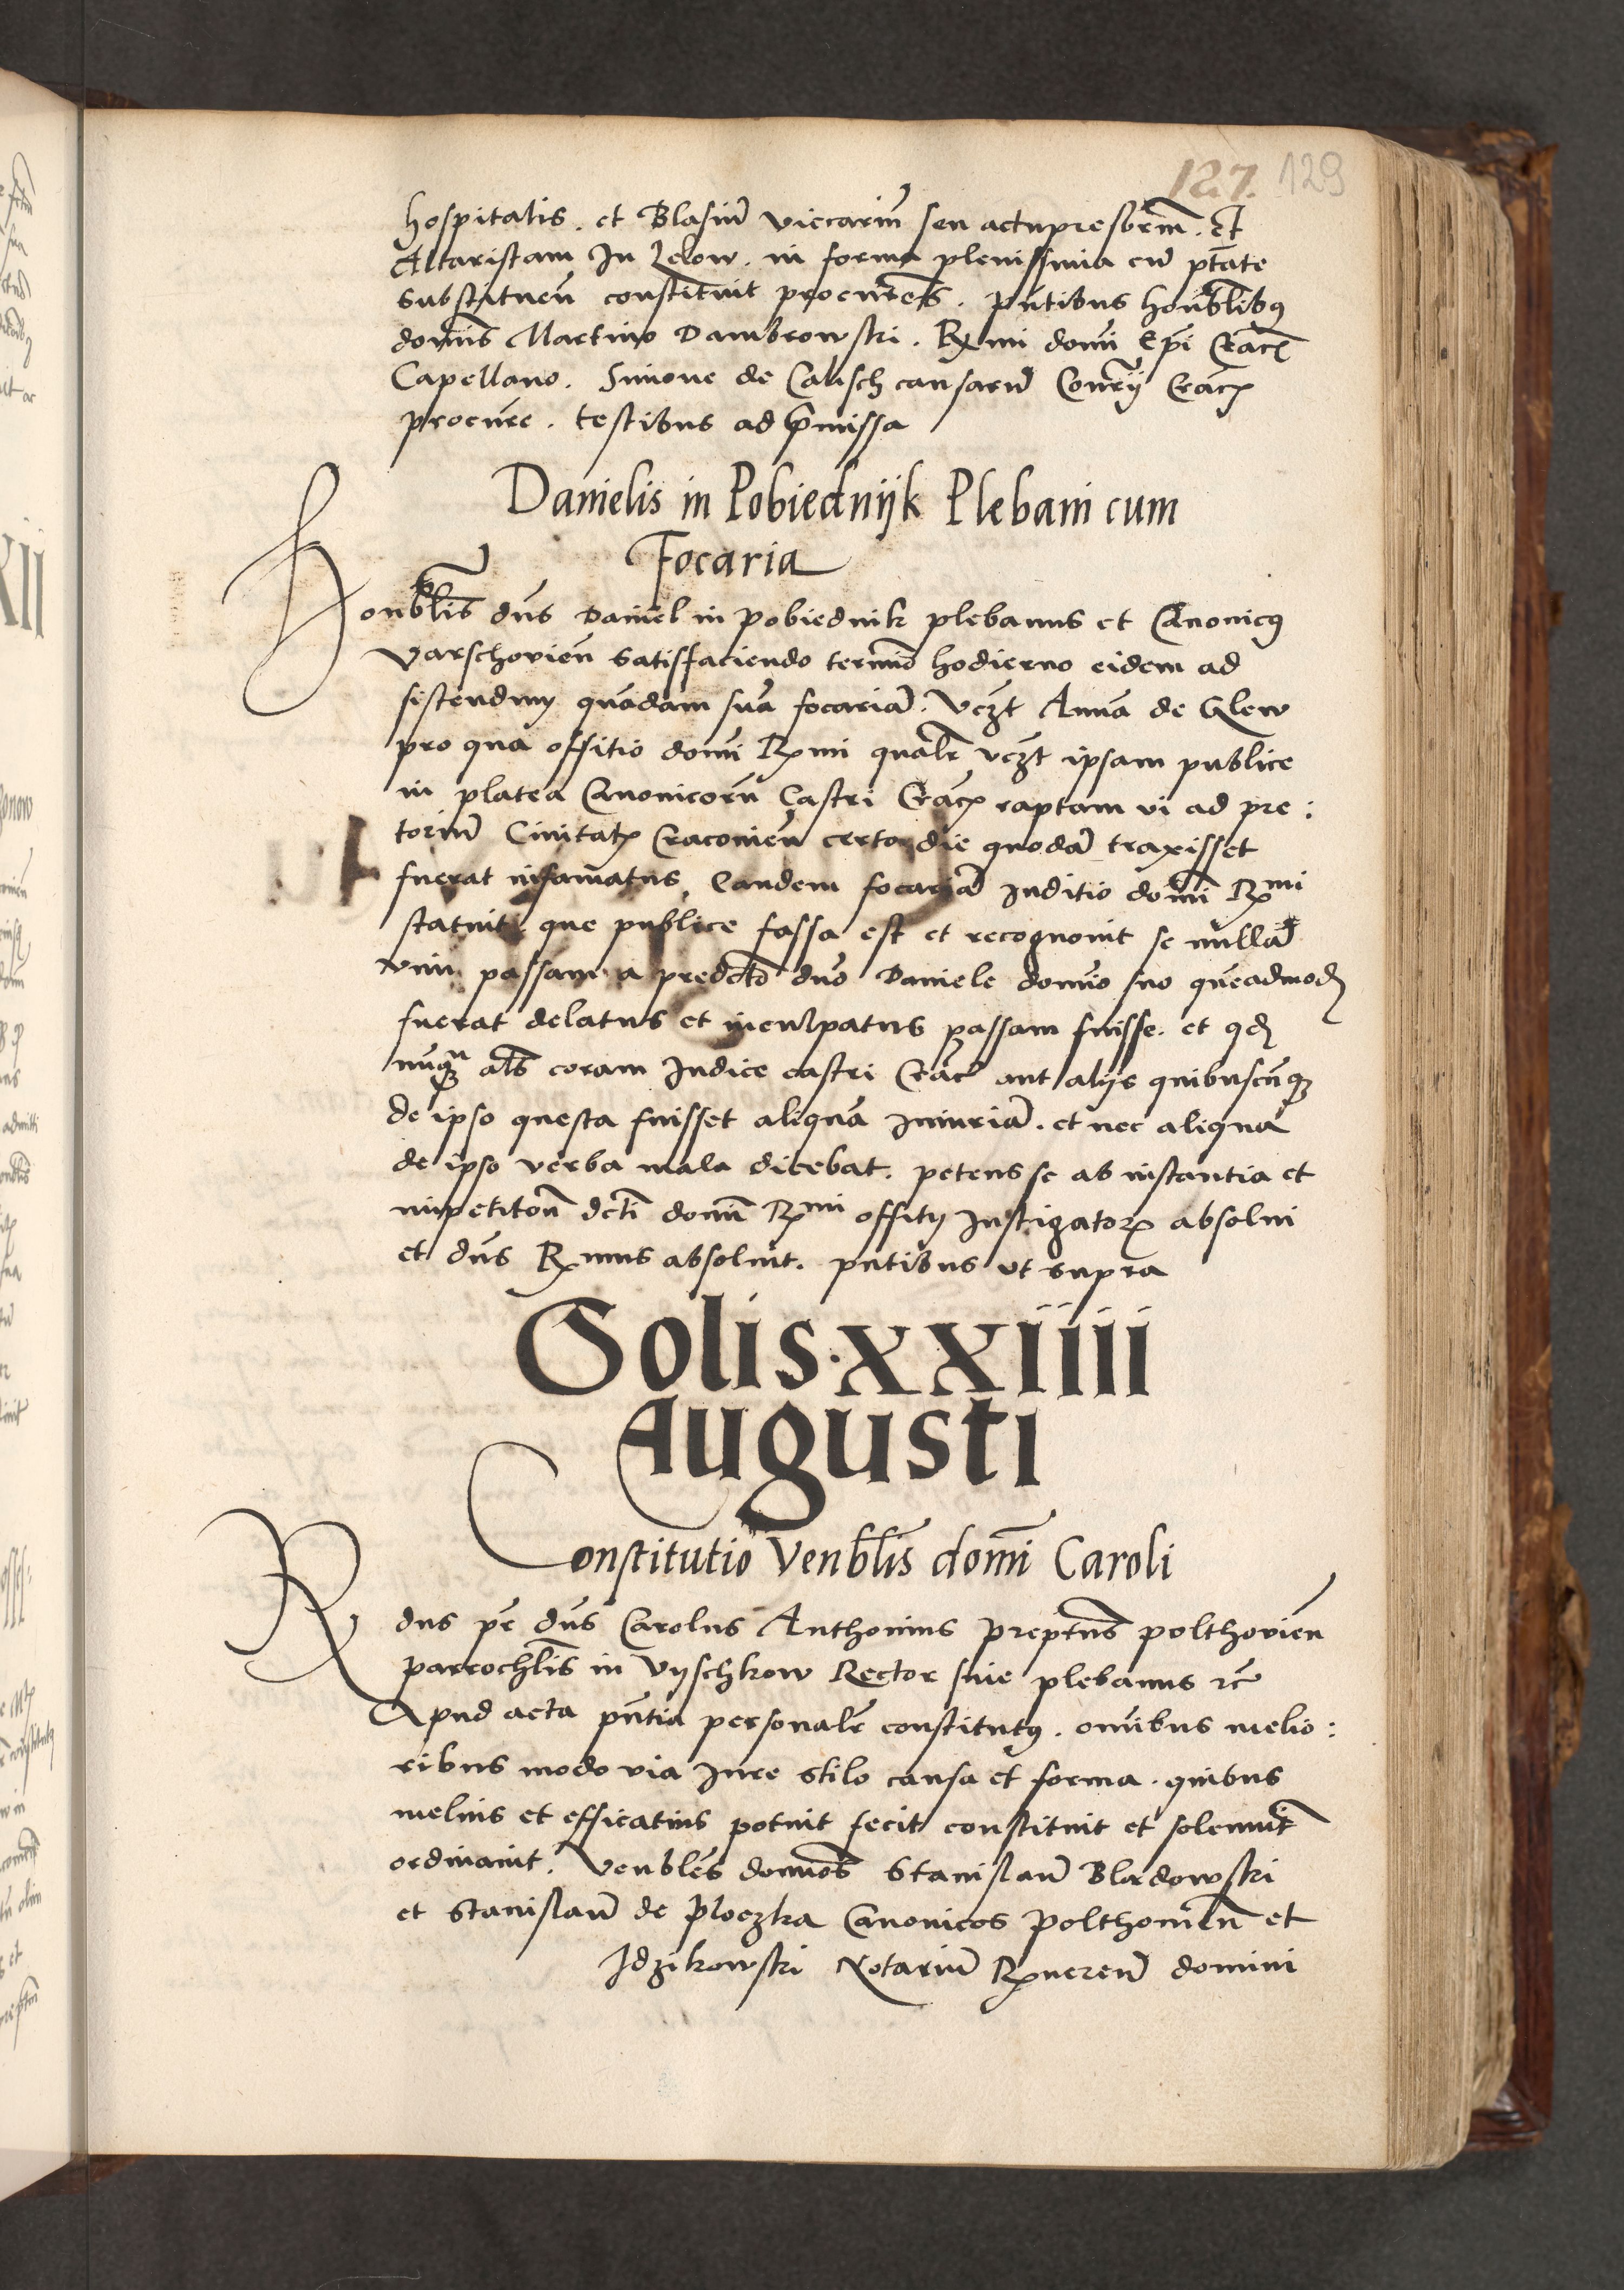 127. 129
hospitalis . et Blasiū viccariū seu actupresbrm̄ . Et
Altaristam In Lelow . in forma plenissima cū ptāte
substituen̄ constituit procur̄es . pn̄tibus honblibꝫ
domīs Martino Dambrowski . Rx̄mi domi Ep̄i Crac̄
Capellano . Simone de Calisch causarū Con̄rij Crac̄
procur̄e . testibus ad p̄missa
Danielis in Pobiednijk Plebani cum
Focaria
Honblis dn̄s Daniel in pobiednik plebanus et Canonicꝫ
Varschovien̄ satisfaciendo termīo hodierno eidem ad
sistendum quādam suā focariā . vcꝫt Annā de Glew
pro qua offitio domi Rx̄mi qualr̄ vcꝫt ipsam publice
in platea Canonicorū Castri Crac̄ raptam vi ad pre:
toriū Civitat̄ Cracovien̄ certo die quodā traxisset
fuerat infamatus, Eandem focariā Inditio domī Rx̄mi
statuit . que publice fassa est et recognovit se nullā
vim passam a predcto dn̄o Daniele domīo suo quēadmod̄
fuerat delatus et inculpatus passam fuisse . et qd̄
nūqꝫ als̄ coram Iudice castri Crac̄ aut alijs quibuscūqꝫ
de ipso questa fuisset aliquā Iniuriā . et nec aliqua
de ipso verba mala dicebat . petens se ab instantia et
impetitōn̄ dcti domī Rx̄mi offitij Instigator̄ absolui
et dn̄s Rx̄mus absoluit . pn̄tibus ut supra
Solis · xxiiii
Augusti
Constitutio Venblis domī Caroli
Rdus pr̄ dn̄s Carolus Anthonius preptus̄ polthovien̄
parrochlis in Vyschkow Rector siue plebanus rc̄
Apud acta pn̄tia personalr̄ constitutꝫ . omībus melio:
ribus modo via Iure stilo causa et forma . quibus
melius et efficatius potuit fecit constituit et solemnit̄
ordinavit . Venbles domos̄ Stanislaū Bladowski
et Stanislaū de Ploczka Canonicos polthovien̄ et
Idzikowski Notariū Rx̄veren̄ domini